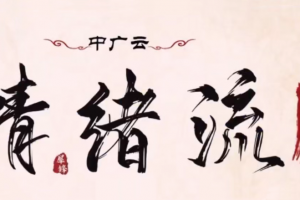 中广云
情绪流